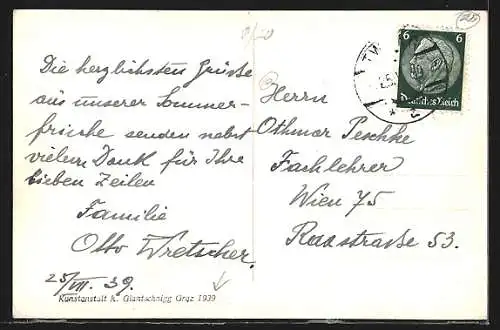 Die herzlichsten Grüße
aus unserer Sommer-
frische senden nebst
vielem Dank für Ihre
lieben Zeilen
Familie
Otto Wretscher.
25/VII. 39.
Kunstanstalt K. Glantschnigg Graz 1939
Herrn
Othmar Peschke
Fachlehrer
Wien 75
Raasstraße 53.
6 6
Deutsches Reich